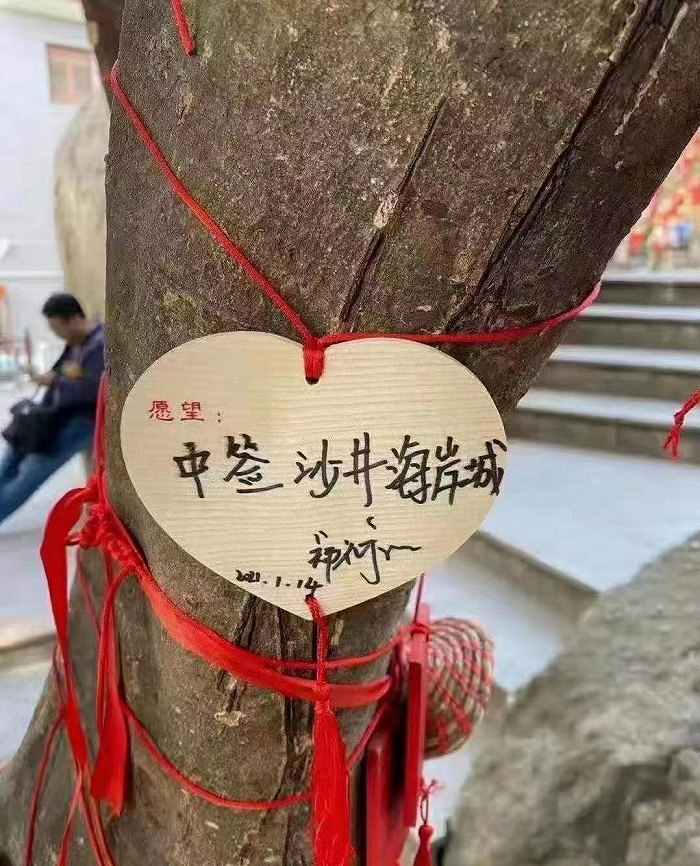 愿望：
中签沙井海岸城
2021.1.14